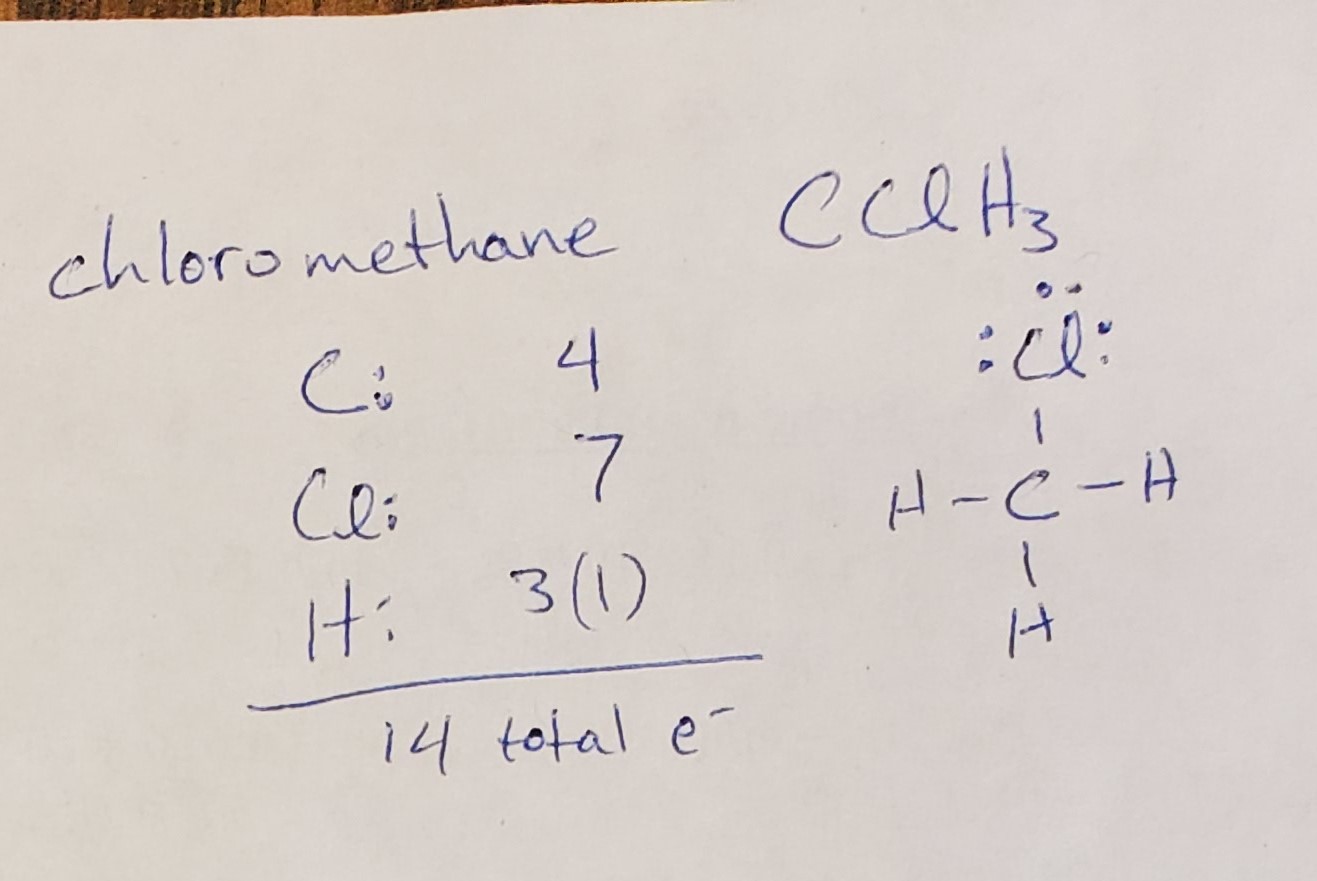 chloromethane CClH₃
C: 4
Cl: 7
H: 3(1)
14 total e⁻
:Cl:
H-C-H
H